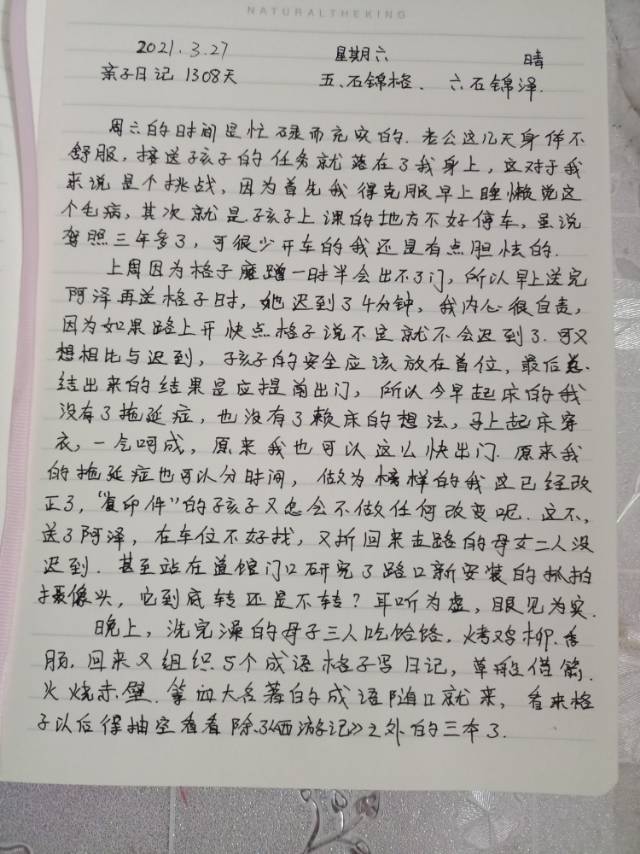 NATURALTHEKING
2021.3.27 星期六 晴
亲子日记 1308天 五、石锦格、 六石锦泽.
周六的时间是忙碌而充实的. 老公这几天身体不
舒服, 接送孩子的任务就落在了我身上, 这对于我
来说是个挑战, 因为首先我得克服早上睡懒觉这
个毛病, 其次就是孩子上课的地方不好停车, 虽说
驾照三年多了, 可很少开车的我还是有点胆怯的.
上周因为格子磨蹭一时半会出不了门, 所以早上送完
阿泽再送格子时, 她迟到了4分钟, 我内心很自责,
因为如果路上开快点格子说不定就不会迟到了. 可又
想相比与迟到, 孩子的安全应该放在首位, 最后总
结出来的结果是应提前出门, 所以今早起床的我
没有了拖延症, 也没有了赖床的想法, 马上起床穿
衣, 一气呵成, 原来我也可以这么快出门. 原来我
的拖延症也可以分时间, 做为榜样的我这已经改
正了, “复印件”的孩子又怎会不做任何改变呢. 这不,
送了阿泽, 在车位不好找, 又折回来走路的母女二人没
迟到. 甚至站在道馆门口研究了路口新安装的抓拍
摄像头, 它到底转还是不转? 耳听为虚, 眼见为实.
晚上, 洗完澡的母子三人吃饸饹, 烤鸡柳. 香
肠. 回来又组织5个成语格子写日记, 草船借箭.
火烧赤壁. 拿四大名著的成语随口就来, 看来格
子以后得抽空看看除了《西游记》之外的三本了.